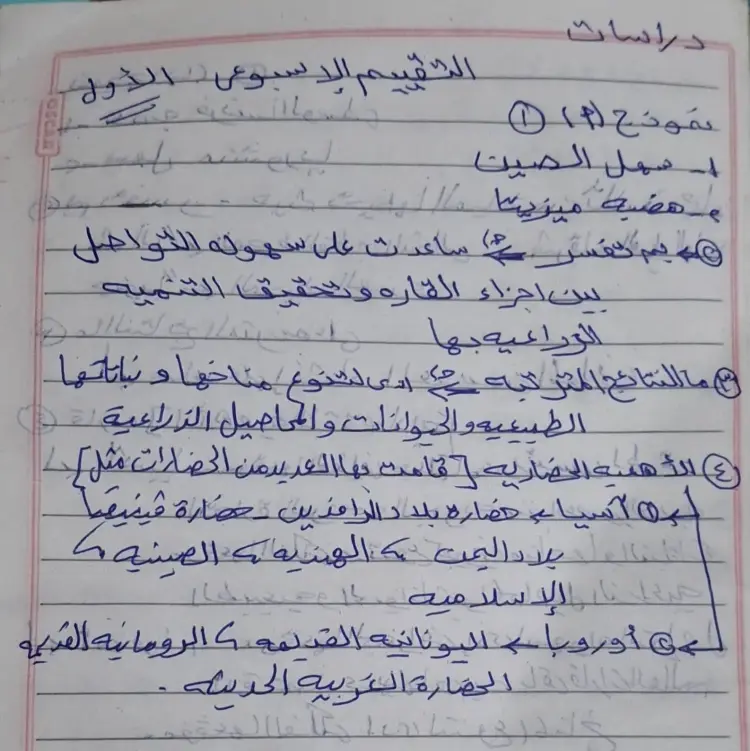 دراسات
التقييم الاسبوعى الأول
نموذج (٩) ①
١- سهل الصين
٢- هضبه ميزيتا
② بم تفسر ← ساعدت على سهوله التواصل
بين اجزاء القاره وتحقيق التنميه
الزراعيه بها
③ ما النتائج المترتبه ← ادى لتنوع مناخها و نباتاتها
الطبيعيه والحيوانات والمحاصيل الزراعية
④ الأهميه الحضاريه [قامت بها العديد من الحضارات مثل]
① آسيا ← حضاره بلاد الرافدين - حضارة فينيقيا
بلاد اليمن ، الهنديه ، الصينيه ،
الإسلاميه
② أوروبا ← اليونانيه القديمه ، الرومانيه القديمه
الحضارة الغربيه الحديثه .
OSCAR